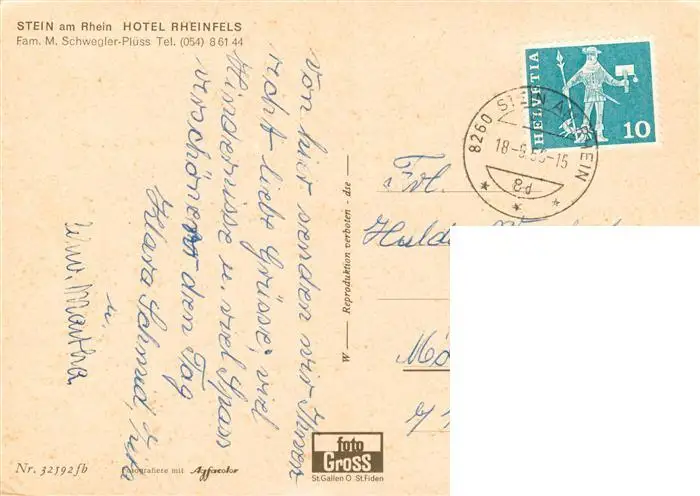 STEIN am Rhein HOTEL RHEINFELS
Fam. M. Schwegler-Plüss Tel. (054) 8 61 44
von hier senden wir Ihnen
recht liebe Grüsse, viel
Hindernisse u. viel Spass
verschönert den Tag
Klara Schmid,
u.
Martha
W — Reproduktion verboten - die —
HELVETIA
10
8260 STEIN A. RHEIN
18-9.
Frl.
Nr. 32592fb
Fotografiere mit Agfacolor
foto
GROSS
St.Gallen O St.Fiden